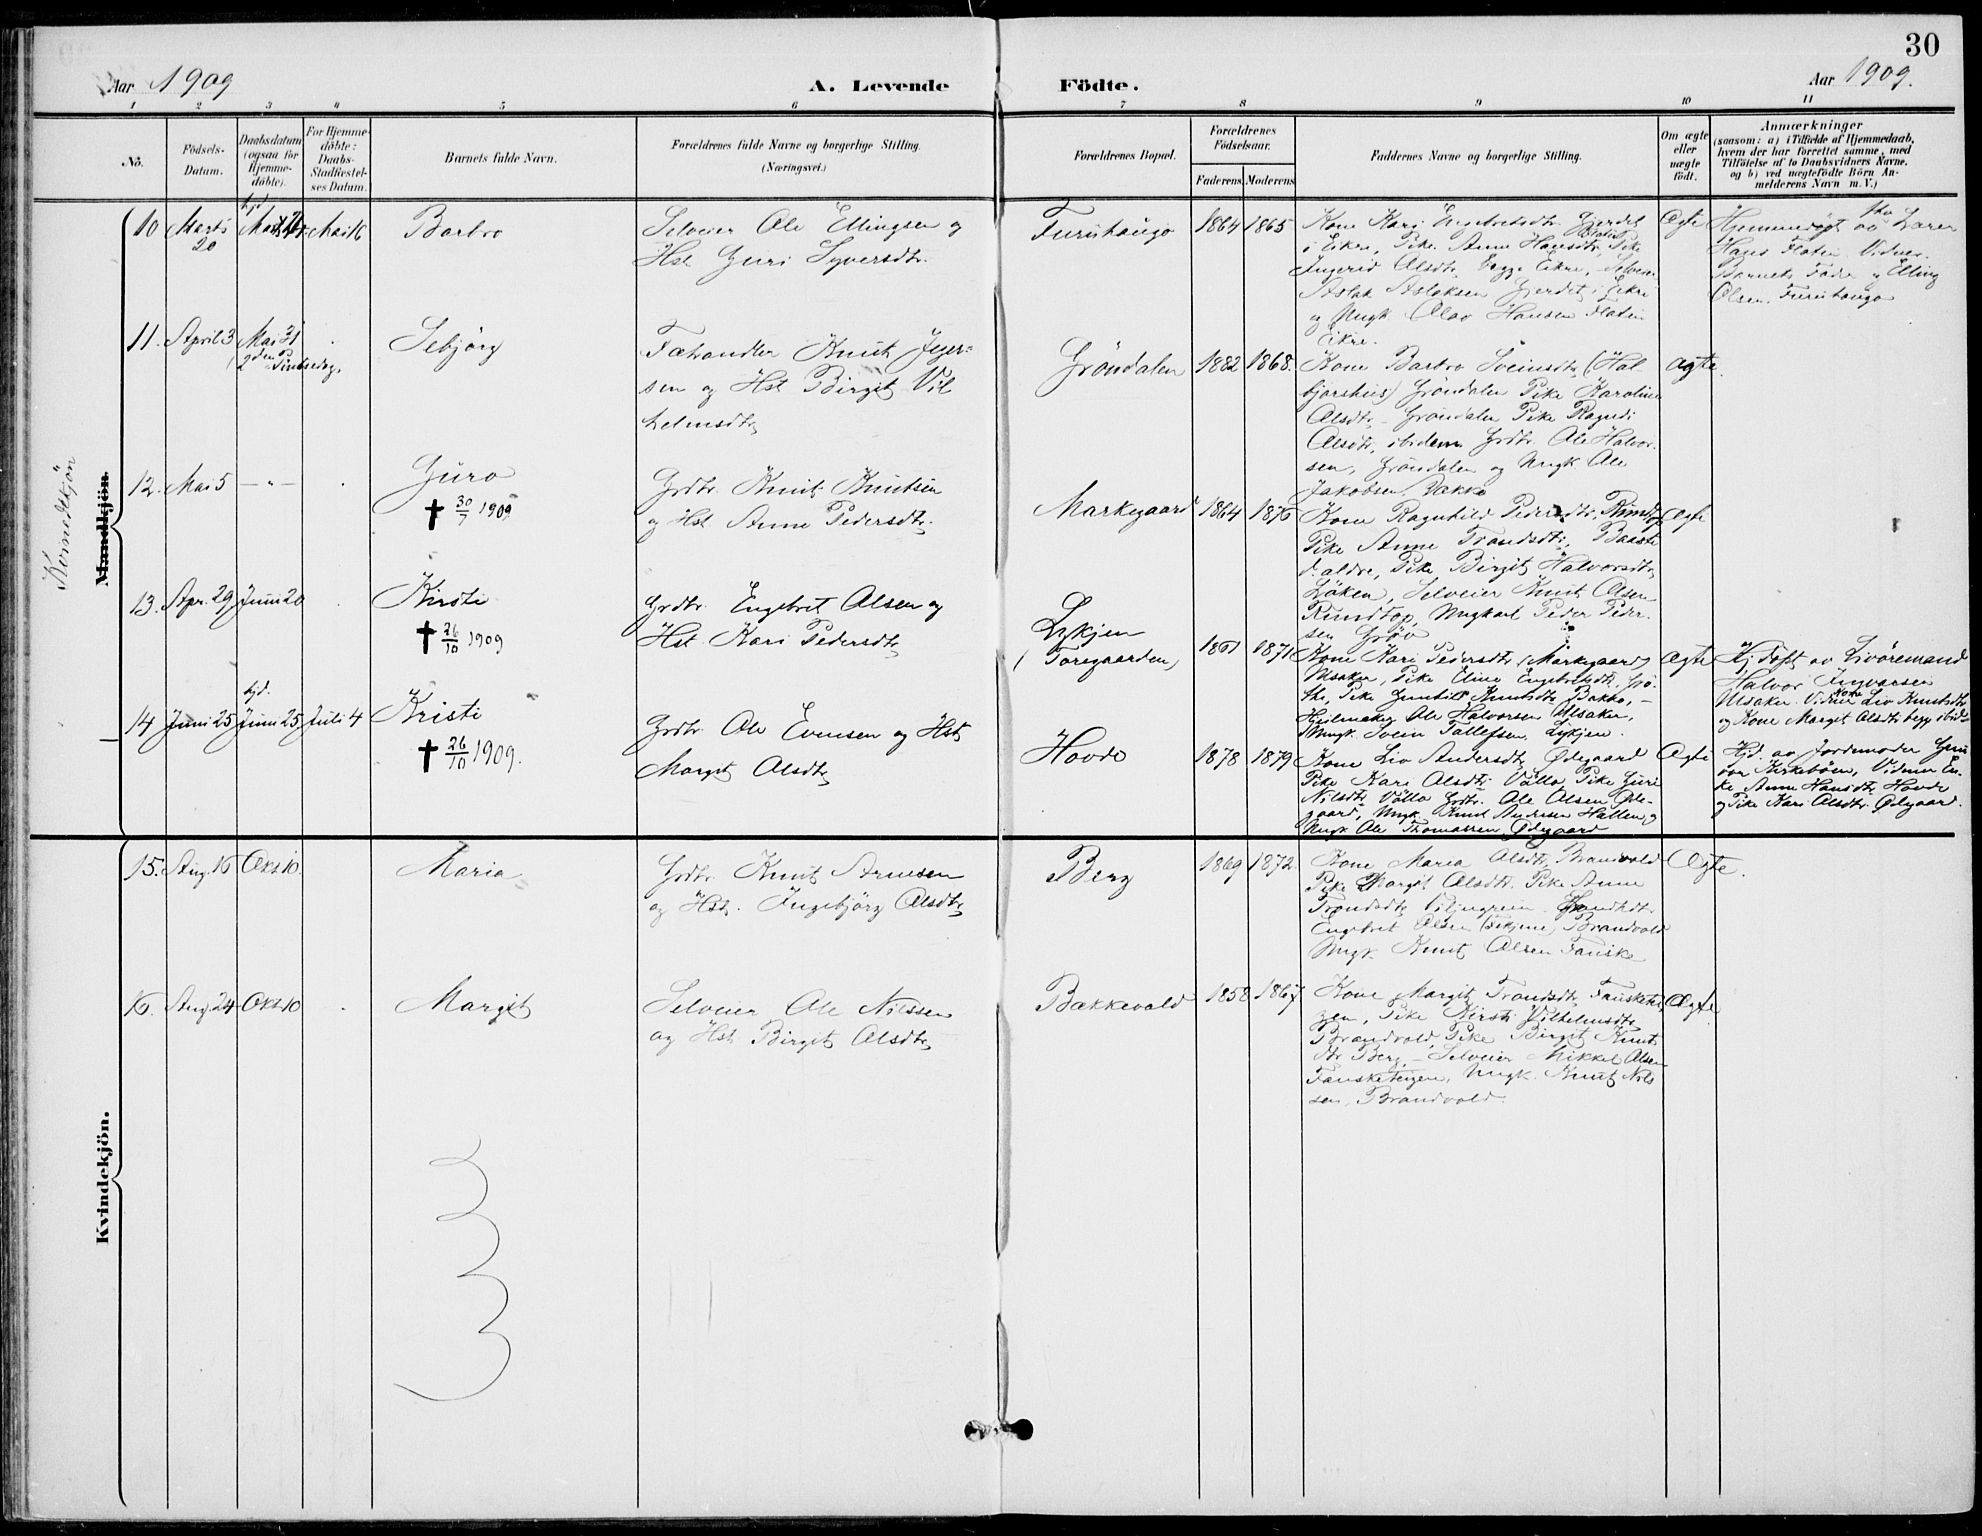 30
Aar 1909
A. Levende Födte.
Aar 1909.
1 2 3 4 5 6 7 8 9 10 11
No.
Födsels-
Datum.
Daabsdatum
(ogsaa for
Hjemme-
döbte).
For Hjemme-
döbte:
Daabs-
Stadfestel-
ses Datum.
Barnets fulde Navn.
Forældrenes fulde Navne og borgerlige Stilling.
(Næringsvei.)
Forældrenes Bopæl.
Forældrenes
Födselsaar.
Faderens. Moderens.
Faddernes Navne og borgerlige Stilling.
Om ægte
eller
uægte
födt.
Anmærkninger
(saasom: a) i Tilfælde af Hjemmedaab,
hvem der har forrettet samme, med
Tilföielse af to Daabsvidners Navne,
og b) ved uægtefödte Börn An-
melderens Navn m. V.)
Mandkjön
Kvindekjön.
10 Marts
20
hjd.
Mai 16
Barbro
Selveier Ole Ellingsen og
Hst. Guri Syversdtr.
Furuhaugo
1864 1865
Kone Kari Engebretsdtr. Gjerdet
i Eikre, Pike Anne Hansdtr. Pike
Ingerid Olsdtr. begge Eikre, Selveier
Aslak Aslaksen Gjerdet i Eikre
og Ungk. Olav Hansen Flaten
Eikre.
Ægte
Hjemmedöpt av Lærer
Hans Flaten. Vidner
Barnets Fader og Elling
Olsen Furuhaugo
11. April 3 Mai 31
2den Pintsedag.
Sebjörg
Fæhandler Knut Jeger=
sen og Hst Birgit Vil
helmsdtr.
Gröndalen
1882 1868.
Kone Barbro Sveinsdtr. (Hal
bjorshus) Gröndalen Pike Karoline
Olsdtr. Gröndalen Pike Ragndi
Olsdtr. ibidem Grdbr. Ole Halvor-
sen, Gröndalen og Ungk Ole
Jakobsen Bakko
ægte.
12. Mai 5 — „ —
Guro
✝ 30/7 1909
Grdbr. Knut Knutsen
og Hst Anne Pedersdtr.
Markegaard
1864 1876
Kone Ragnhild Pedersdtr. Rundtop
Pike Anne Trondsdtr. Baasta
d. aldre, Pike Birgit Halvorsdtr.
Löken, Selveier Knut Olsen
Rundtop, Ungkarl Peder Peder-
sen Gröv
Ægte
13. Apr. 29 Juni 20
Kirsti
✝ 26/10 1909
Grdbr. Engebret Olsen og
Hst. Kari Pedersdtr.
Lykjen
(Toregaarden)
1871
Kone Kari Pedersdtr. (Markegaard)
Ulsaker, Pike Eline Engebretsdtr.
Pike Gunhild Knudsdtr. Bakko,
Ole Halvorsen Ulsaker,
Ungk. Svein Tollefsen Lykjen.
Ægte
Hj. döpt av
Halvor Ingvarsen
Ulsaker. Vidner Kone Liv Knutsdtr.
og Kone Margit Olsdtr. begge ibid-
14 Juni 25
hjd.
Juni 25 Juli 4
Kristi
✝ 26/10 1909.
Grdbr. Ole Evensen og Hst
Margit Olsdtr.
Hovde
1878 1879
Kone Liv Andersdtr. Ødegaard
Pike Kari Olsdtr. Völlo, Pike Guri
Nilsdtr. Völlo Grdbr. Ole Olsen Øde-
gaard, Ungk. Knut Andersen Hallen og
Ungk Ole Thomassen Ødegaard
Ægte
Hjd. av Jordemoder Gun
vor Kirkeböen, Vidner En-
ke Anne Hansdtr. Hovde
og Pike Kari Olsdtr. Ødegaard.
15. Aug. 16 Okt. 10.
Maria
Grdbr. Knut Arnesen
og Hst. Ingebjörg Olsdtr.
Berg
1869 1872.
Kone Maria Olsdtr. Brandvold
Pike Margit Olsdtr. Pike Anne
Trondsdtr.
Engebret Olsen Brandvold
Ungk. Knut Olsen Fauske
Ægte.
16. Aug. 24 Okt 10
Margit
Selveier Ole Nilssen
og Hst Birgit Olsdtr.
Bækkevold
1858 1867
Kone Margit Trondsdtr. Fausketei
gen, Pike Kirsti Vilhelmsdtr.
Brandvold, Pike Birgit Knuts
dtr. Berg, Selveier Mikkel Olsen
Fausketeigen, Ungk. Knut Nils
sen, Brandvold.
Ægte